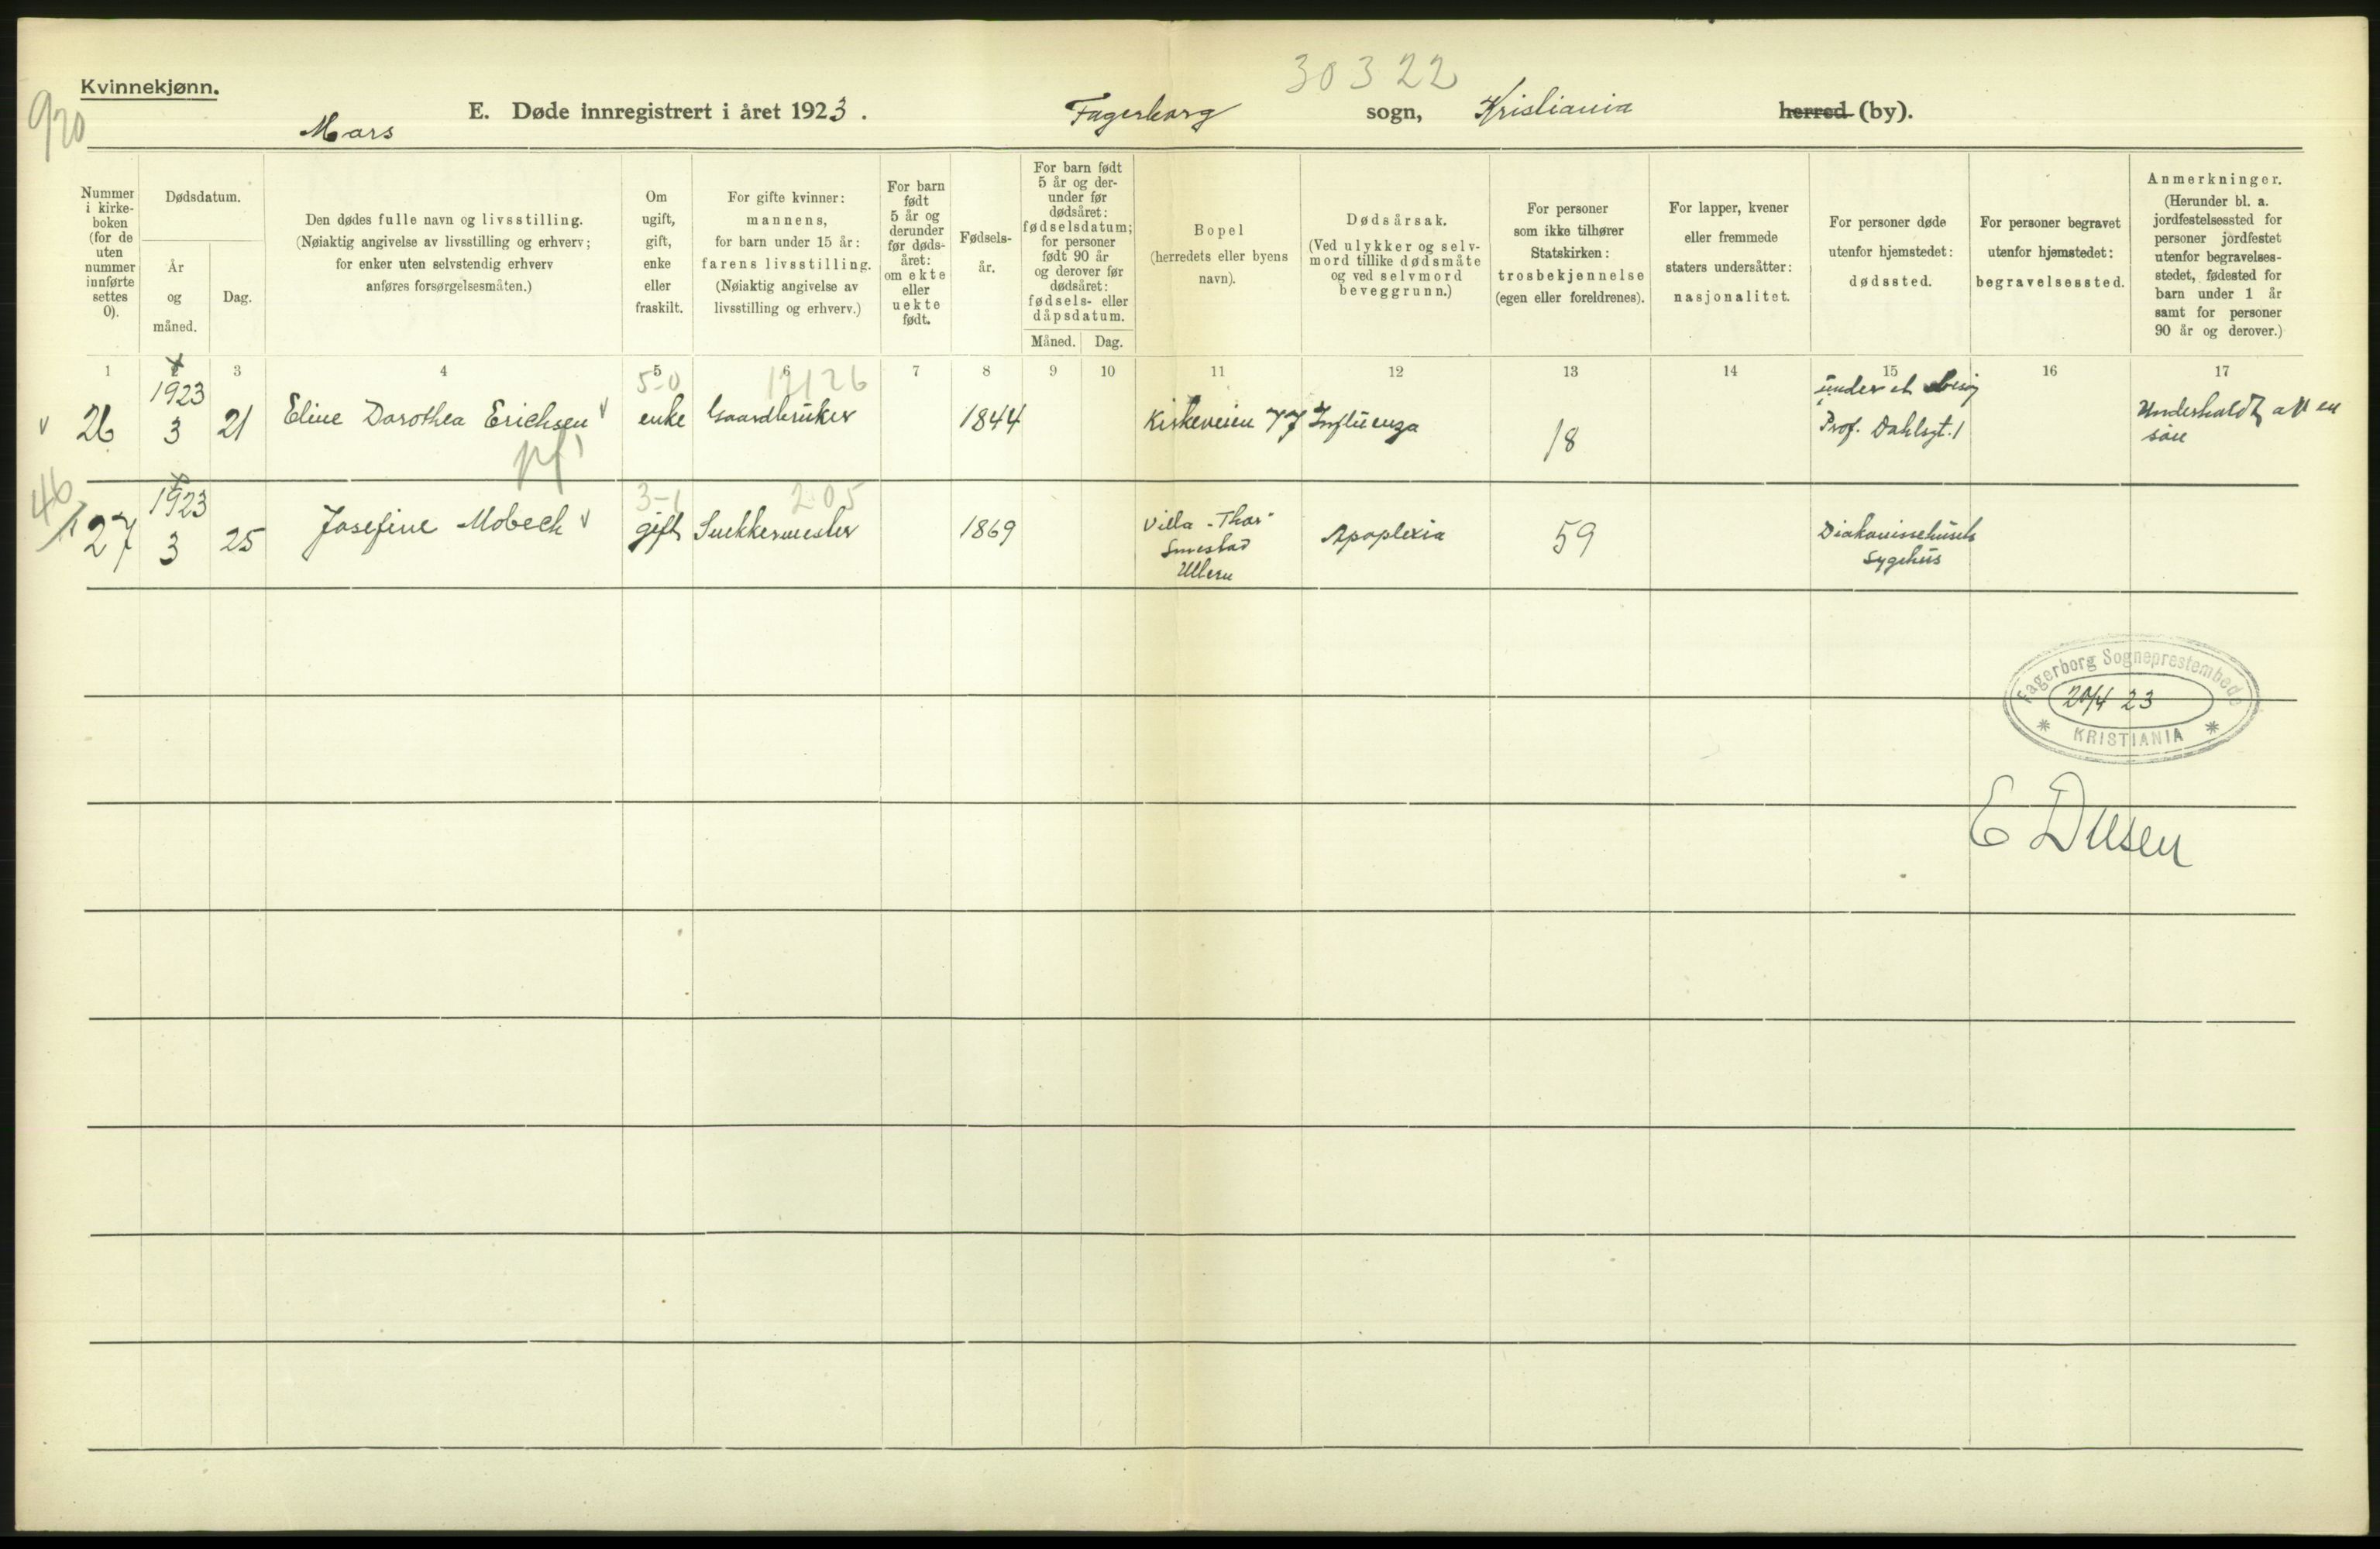 30322
Kvinnekjønn.
920
Mars
E. Døde innregistrert i året 1923. Fagerborg sogn, Kristiania herred (by).
Nummer i kirkeboken (for de uten nummer innførte settes 0).
Dødsdatum.
År og måned.
Dag.
Den dødes fulle navn og livsstilling.
(Nøiaktig angivelse av livsstilling og erhverv;
for enker uten selvstendig erhverv
anføres forsørgelsesmåten.)
Om ugift, gift, enke eller fraskilt.
For gifte kvinner:
mannens,
for barn under 15 år:
farens livsstilling.
(Nøiaktig angivelse av
livsstilling og erhverv.)
For barn født 5 år og derunder før dødsåret: om ekte eller uekte født.
Fødselsår.
For barn født 5 år og derunder før dødsåret: fødselsdatum; for personer født 90 år og derover før dødsåret: fødsels- eller dåpsdatum.
Måned. Dag.
Bopel
(herredets eller byens
navn).
Dødsårsak.
(Ved ulykker og selvmord tillike dødsmåte og ved selvmord beveggrunn.)
For personer
som ikke tilhører
Statskirken:
trosbekjennelse
(egen eller foreldrenes).
For lapper, kvener
eller fremmede
staters undersåtter:
nasjonalitet.
For personer døde
utenfor hjemstedet:
dødssted.
For personer begravet
utenfor hjemstedet:
begravelsessted.
Anmerkninger.
(Herunder bl. a.
jordfestelsessted for
personer jordfestet
utenfor begravelses-
stedet, fødested for
barn under 1 år
samt for personer
90 år og derover.)
1 2 3 4 5 6 7 8 9 10 11 12 13 14 15 16 17
5-0 17126
26 1923 3 21 Eline Dorothea Erichsen enke Gaardbruker 1844 Kirkeveien 77 Influenza 18 under et besøg Prof. Dahlsgt. 1 Underholdt af en søn
46
3-1 205
27 1923 3 25 Josefine Mobech gift Snekkermester 1869 Villa "Thor" Smestad Ullern Apoplexia 59 Diakonissehusets Sygehus
Fagerborg Sogneprestembede
20/4 23
KRISTIANIA